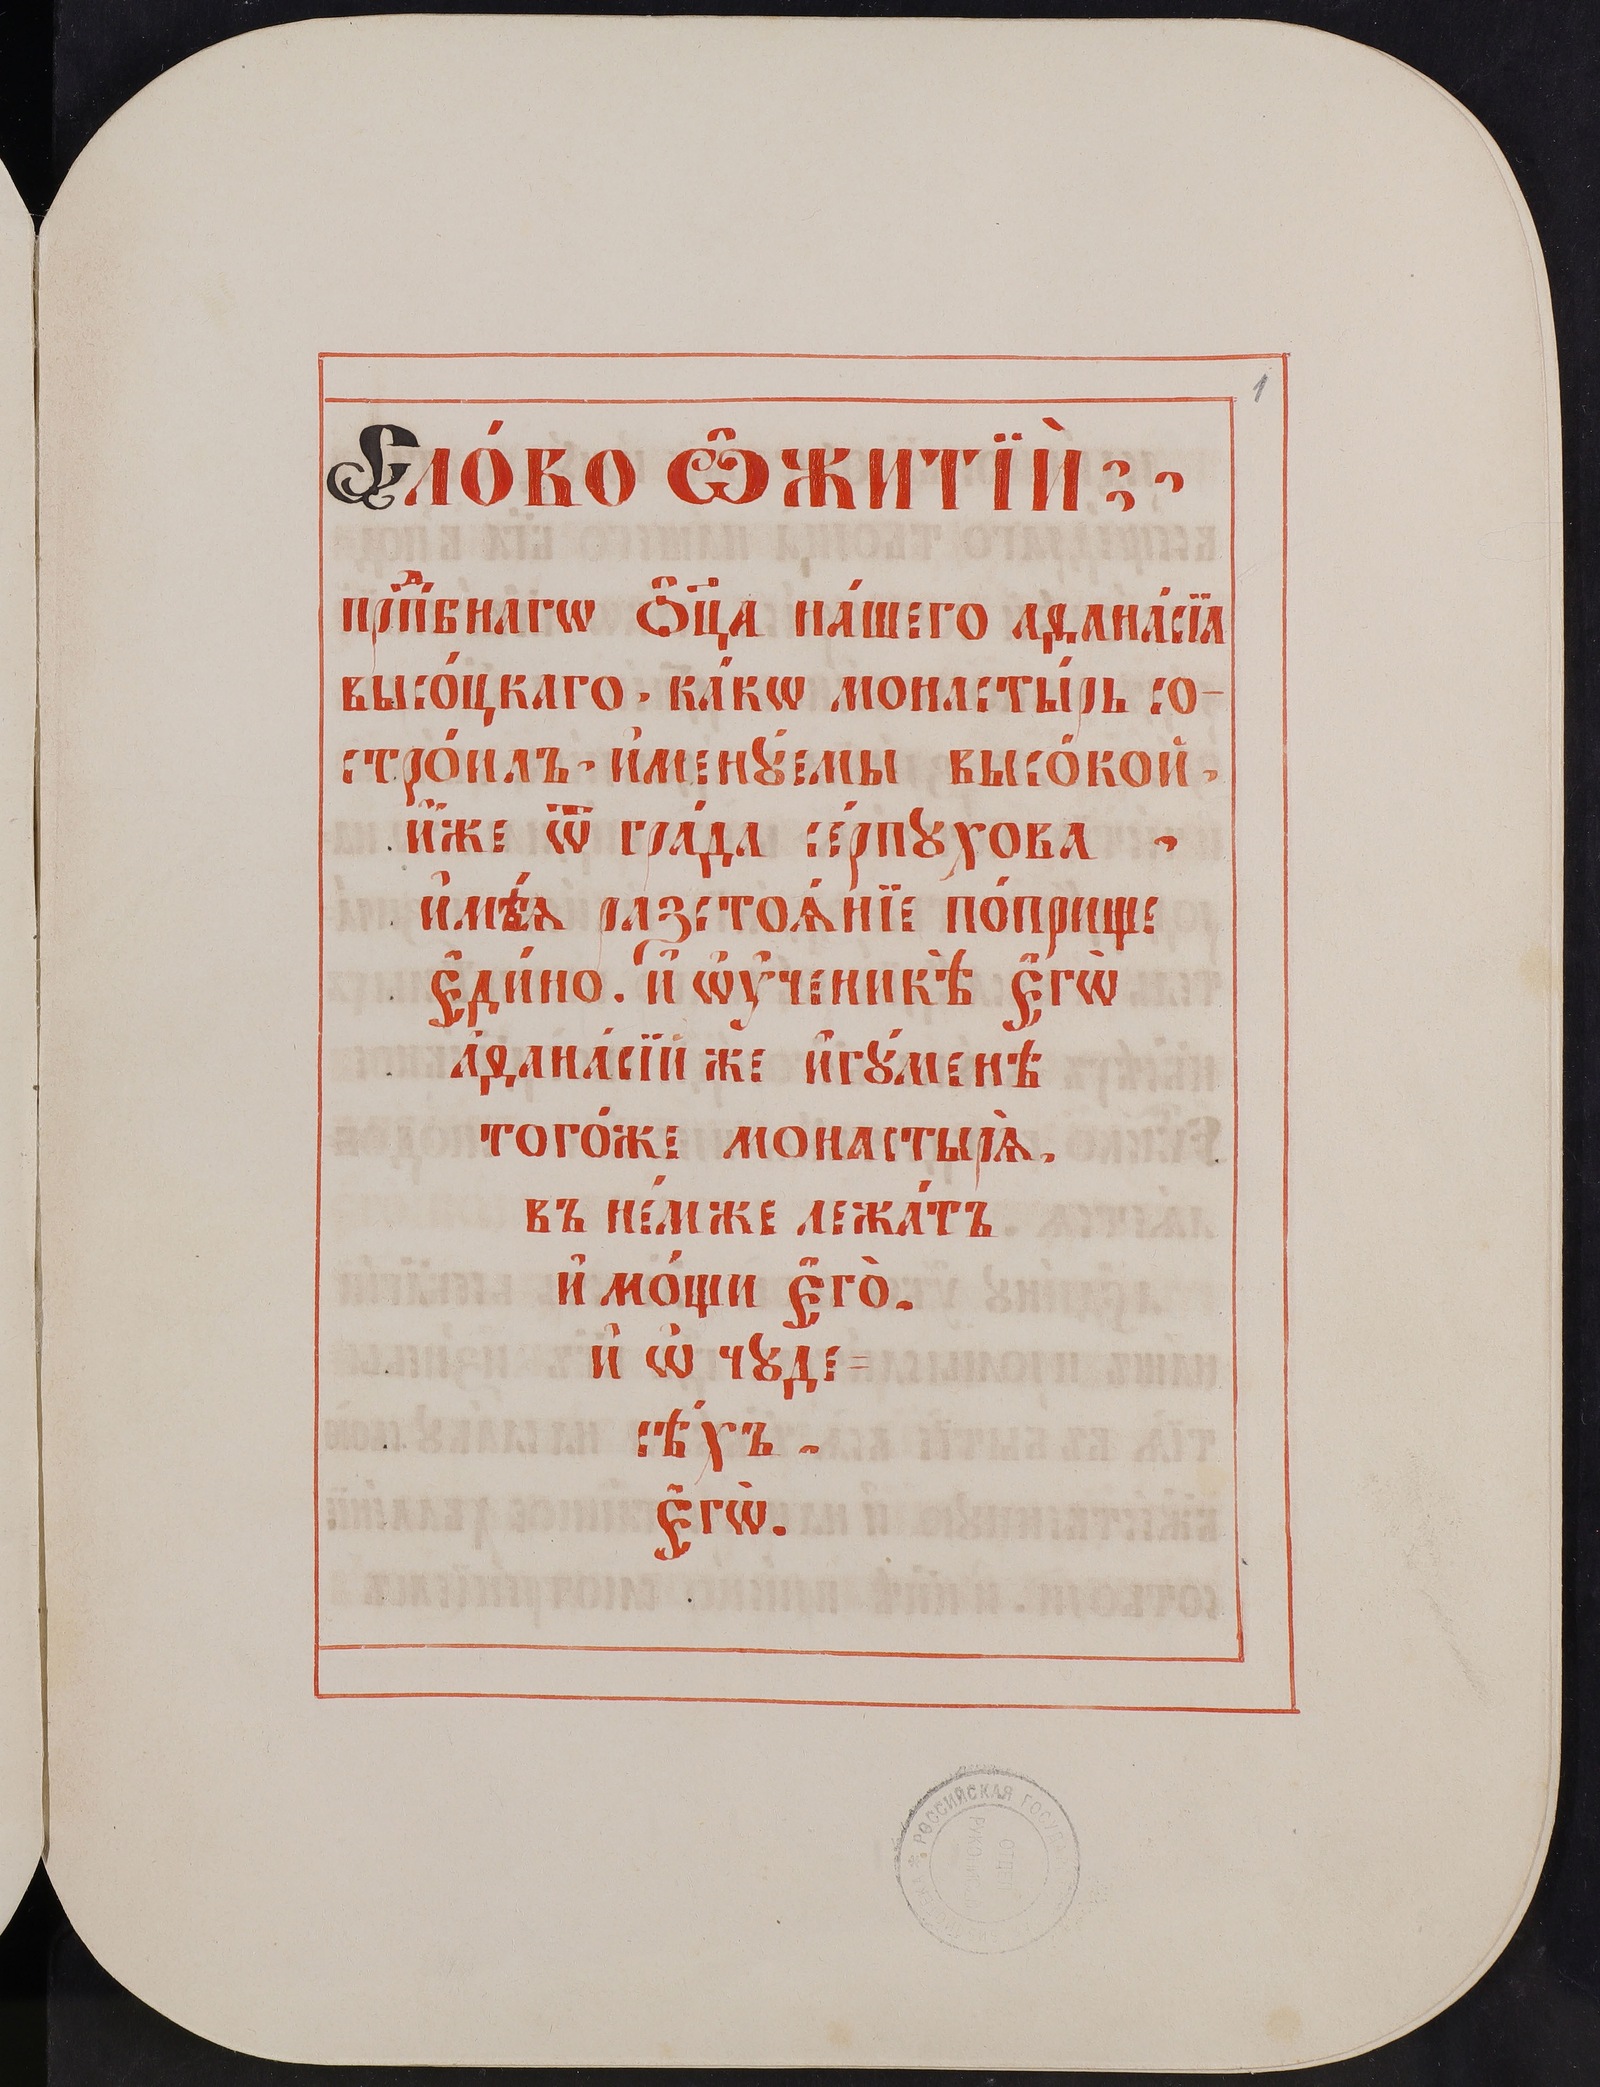 1
Сло́во ѽ житїѝ
прпⷣбнагѡ ѻ҆ц҃а на́шего аѳана́сїа
высо́цкаго. ка́кѡ монасты́рь со-
стро́илъ. и҆менꙋ́емы высо́кой.
и҆́же ѿ гра́да се́рпꙋхова
и҆мѣ́ѧ разстоѧ́нїе по́прище
є҆ди́но. и҆ ѡ҆ ᲂу҆ченикѣ̀ є҆гѡ̀
а҆ѳана́сїи же и҆гꙋ́менѣ
того́же монастырѧ̀.
въ не́мже лежа́тъ
и҆ мо́щи є҆го̀.
и҆ ѡ҆ чꙋде=
сѣ́хъ.
є҆гѡ̀.
РОССИЙСКАЯ ГОСУДА
ОТДЕЛ
РУКОПИСЕЙ